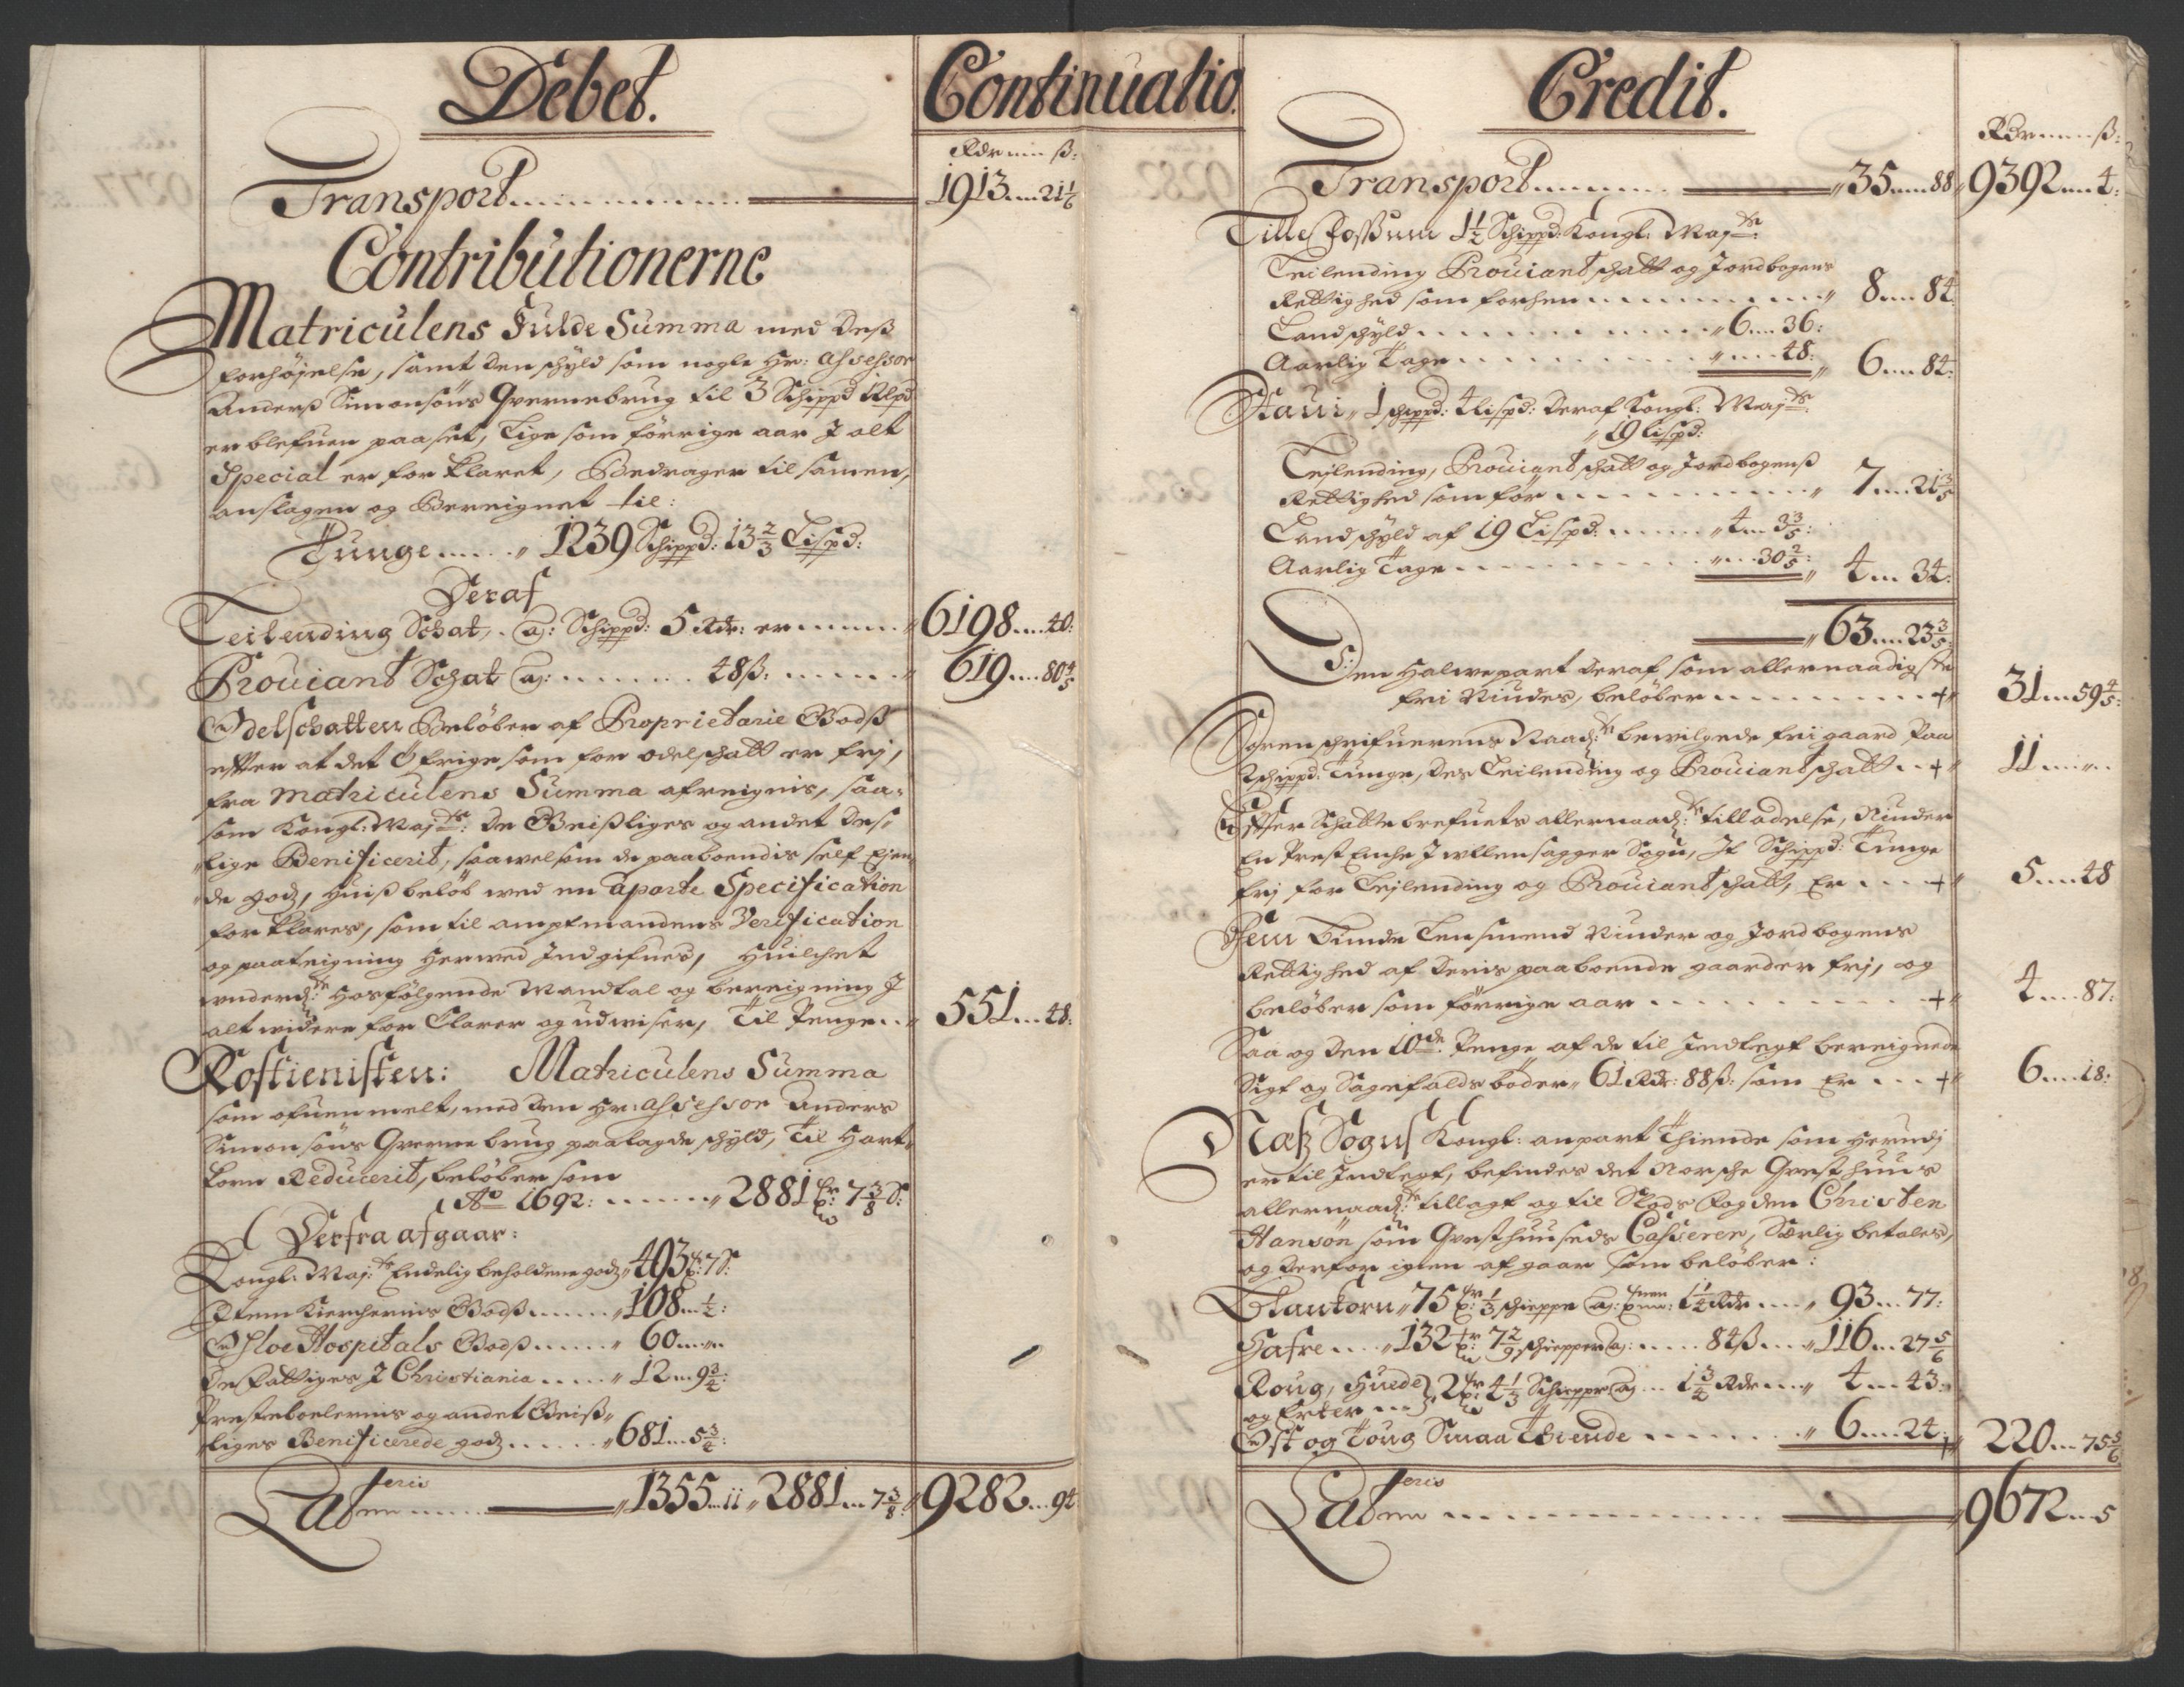 Debet. Continuatio.
Rdr ß:
Transport 1913 21 1/6
Contributionerne
Matriculens Fulde Summa med Dess
forhøyelse, samt den schyld som nogle Hr: Assessor
Anderß Simonsøns Qvernebrug til 3 Schippd 1 Lpd
er blefuen paaset, Lige som förrige aar J alt
Special er for klaret, Bedrager til samen,
anslagen og Bereignet til:
Tunge 1239 Schippd: 13 2/3 Lispd:
Deraf
Leilending Schat, aj: Schippd: 5 Rdr: er 6198 40:
Prouiant Schat aj: 48ß: 619 80 4/5
Odelschatten Beløber af Proprietarie Godß
efter at det Öfrige som for odelschatt er frj,
fra Matriculens Summa afreignis, saa-
som Kongl: Majts: De Geistliges og andet Des-
lige Benificerit, saawelsom de paaboendis self Ejen-
de godz, huiß beløb wed en aparte Specification
for klares, som til amptmandens Verification
og paateigning herwed Indgifues, huilchet
hosfølgende Mandtal og bereigning J
alt widere for klarer og udwiser, Til Penge 551 48:
Rostienisten: Matriculens Summa
som ofuenmelt, med den Hr: Assessor Anders
Simonsöns Qvernebrug paalagde schyld, Til Hart-
korn Reducerit, beløber som
Ao 1692: 2881 7 3/8 S:
Derfra afgaar:
Kongl: Maj:ts Endelig beholdene godz 403 7 S:
Item Kierchernis Godß 108 1/2:
Osloe Hospitals Godß 60
De Fattiges J Christiania 12 9 3/4:
Presteboelernis og andet Geist-
liges Benificerede godz 681 5 3/4:
Lateris 1355 11 2881 7 3/8 9282 94
Credit.
Rdr ß:
Transport 35 88 9392 4:
Tille Fossum 1 1/2 Schippd: Kongl: Majts:
Leilending Prouiantschatt og Jordbogens
Rettighed som forhen 8 84:
Landschyld 6 36:
Aarlig Tage 48: 6 84:
Staui 1 schippd: 4 lispd: Deraf Kongl: Majts:
19 Lispd:
Leilending, Prouiantschatt og Jordbogenß
Rettighed som før 7 21 3/5
Landschyld af 19 Lispd: 4 3 3/5:
Aarlig Tage 30 2/5: 4 34:
63 23 3/5:
Den Halwepart deraf som allernaadigste
fri Niudes, beløber + 31 59 4/5:
Sorenschrifuerens Naad:te bewilgede frigaard Paa
2 schippd: Tunge, Des Leilending og Prouiantschatt + 11
Efter Schattebrefuets allernaad:te tilladelse, Niuder
En Prest Enche J Ullensagger Sogn, J Schippd: Tunge
frj for Leilending og Prouiantschatt, Er + 5 48
Fem Bunde Lensmend Niuder og Jordbogens
Rettighed af deris paaboende gaarder frj, og
beløber som förrige aar + 4 87:
Saa og den 10de Penge af de til Indtegt bereignede
Sigt og Sagefaldsbøder 61 Rdr: 88ß: som Er + 6 18:
Næß Sogns Kongl: anpart Thiende som herudj
er til Indtegt, befindes det Norsche Qvesthuus
allernaad:te tillagt og til Slods Fogden Christen
Hansön som Qvesthuuseds Casserer, Særlig betales,
og derfor igien afgaar som beløber:
Blankorn 75 1/3 schieppe aj: 1 1/4 Rdr 93 77:
Hafre 132 7 2/9 schiepper aj: 84ß 116 27 5/6
Roug, Huede 2 4 1/3 Schieppe aj 1 3/4 Rdr 4 43:
og Erter
Ost og Toug Smaa Thiende 6 24: + 220 75 5/6
Lateris 9672 5